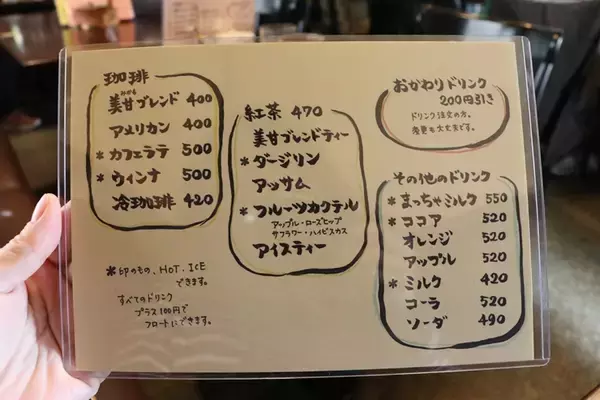 珈琲
美甘ブレンド 400
アメリカン 400
* カフェラテ 500
* ウィンナ 500
冷珈琲 420
* 印のもの、HOT, ICE
できます。
すべてのドリンク
プラス100円で
フロートにできます。
紅茶 470
美甘ブレンドティー
* ダージリン
アッサム
* フルーツカクテル
アップル・ローズヒップ
サフラワー・ハイビスカス
アイスティー
おかわりドリンク
200円引き
ドリンク注文の方。
変更も大丈夫です。
その他のドリンク
* まっちゃミルク 550
* ココア 520
オレンジ 520
アップル 520
* ミルク 420
コーラ 520
ソーダ 490